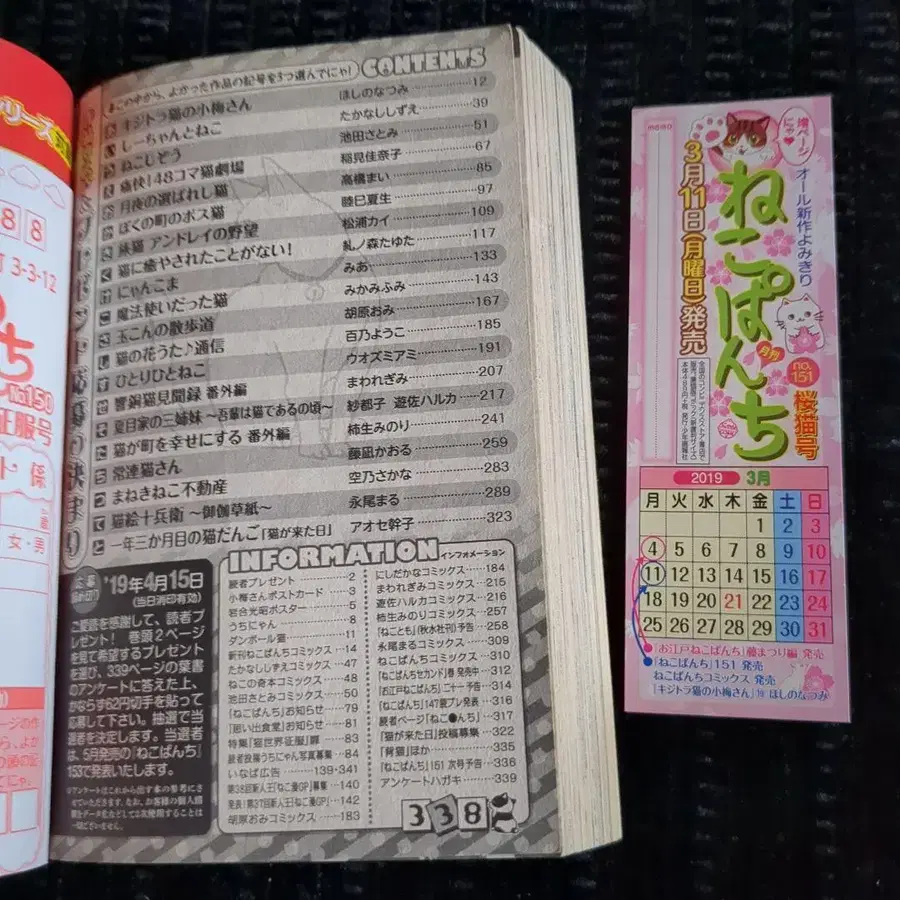 リーズ
88
3-3-12
no.150
征服号
係
女・男
この中から、よかった作品の記号を3つ選んでにゃ!
CONTENTS
キジトラ猫の小梅さん ほしのなつみ 12
しーちゃんとねこ たかなししずえ 39
ねこじぞう 池田さとみ 51
痛快!48コマ猫劇場 稲見佳奈子 67
月夜の選ばれし猫 高橋まい 85
ぼくの町のボス猫 睦巳夏生 97
旅猫 アンドレイの野望 松浦カイ 109
猫に癒やされたことがない! 糺ノ森たゆた 117
にゃんこま みあ 133
魔法使いだった猫 みかみふみ 143
玉こんの散歩道 胡原おみ 167
猫の花うた♪通信 百乃ようこ 185
ひとりひとねこ ウオズミアミ 191
響銅猫見聞録 番外編 まわれぎみ 207
夏目家の三姉妹 〜吾輩は猫であるの頃〜 紗都子 遊佐ハルカ 217
猫が町を幸せにする 番外編 柿生みのり 241
常連猫さん 藤凪かおる 259
まねきねこ不動産 空乃さかな 283
猫絵十兵衛 〜御伽草紙〜 永尾まる 289
一年三か月目の猫だんご「猫が来た日」 アオセ幹子 323
応募締め切り '19年4月15日
(当日消印有効)
ご愛読を感謝して、読者プ
レゼント! 巻頭2ページ
を見て希望するプレゼント
を選び、339ページの葉書
のアンケートに答えた上、
かならず62円切手を貼って
応募して下さい。抽選で当
選者を決定します。当選者
は、5月発売の『ねこぱんち』
153で発表いたします。
INFORMATION インフォメーション
読者プレゼント 2
小梅さんポストカード 3
岩合光昭ポスター 5
うちにゃん 8
ダンボール猫 11
新刊ねこぱんちコミックス 14
たかなししずえコミックス 47
ねこの奇本コミックス 48
池田さとみコミックス 50
『ねこぱんち』お知らせ 79
『思い出食堂』お知らせ 81
特集「猫世界征服」扉 83
読者投稿うちにゃん写真募集 84
いなば広告 139・341
第38回新人王「ねこ漫GP」募集 140
発表!「第37回新人王「ねこ漫GP」 142
胡原おみコミックス 183
にしだかなコミックス 184
まわれぎみコミックス 215
遊佐ハルカコミックス 216
柿生みのりコミックス 257
『ねことも』(秋水社刊)予告 258
永尾まるコミックス 309
ねこぱんちコミックス 310
『ねこぱんちセカンド』春 発売中 312
『お江戸ねこぱんち』二十一予告 314
『ねこぱんち』147裏プレ発表 316
読者ページ「ねこ●んち」 317
「猫が来た日」投稿募集 322
「背猫」ほか 335
『ねこぱんち』151 次号予告 336
アンケートハガキ 339
338
memo
増ページにゃ♥
オール新作よみきり
3月11日(月曜日)発売
月刊
ねこぱんち
no.151
桜猫号
2019 3月
月 火 水 木 金 土 日
1 2 3
4 5 6 7 8 9 10
11 12 13 14 15 16 17
18 19 20 21 22 23 24
25 26 27 28 29 30 31
『お江戸ねこぱんち』藤まつり編 発売
『ねこぱんち』151 発売
ねこぱんちコミックス 発売
『キジトラ猫の小梅さん』⑲ ほしのなつみ